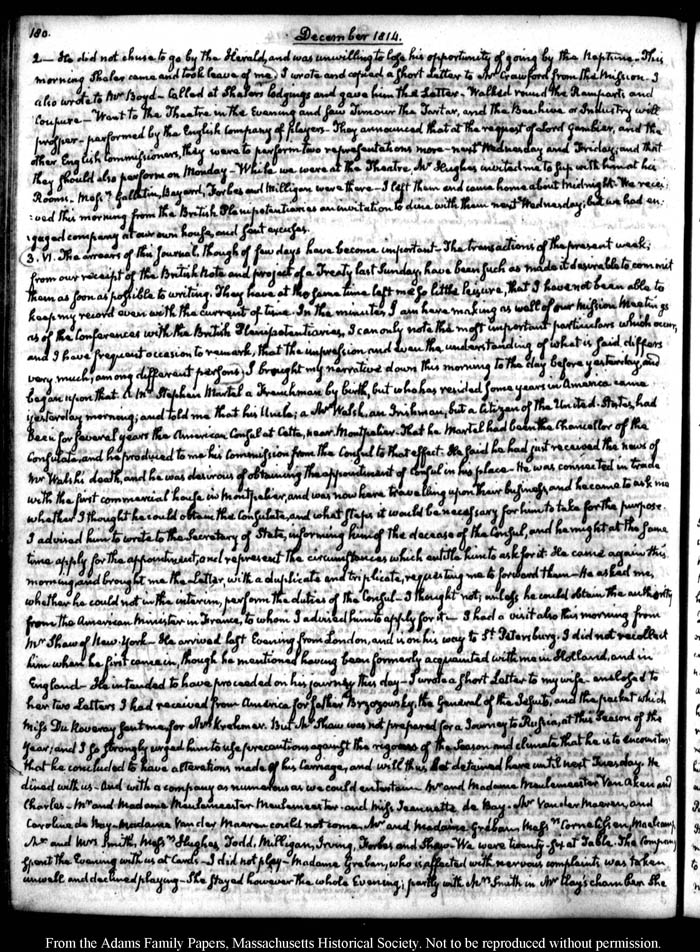 180.
December 1814.
2 — He did not chuse to go by the Herald, and was unwilling to lose his opportunity of going by the Neptune — This
morning Shaler came and took leave of me. I wrote and copied a short Letter to Mr Crawford from the Mission — I
also wrote to Mr Boyd — Called at Shaler's lodgings and gave him the Letter — Walked round the Ramparts and
Coupure — Went to the Theatre in the Evening and saw Timour the Tartar, and the Bee-hive or Industry will
prosper — performed by the English Company of Players — They announced that at the request of Lord Gambier, and the
other English Commissioners, they were to perform two representations more — next Wednesday and Friday; and that
they should also perform on Monday — While we were at the Theatre, Mr Hughes invited me to sup with him at his
Rooms. Messrs Gallatin, Bayard, Forbes and Milligan were there — I left them and came home about midnight — We recei-
:ved this morning from the British Plenipotentiaries an invitation to dine with them next Wednesday; but we had en:
:gaged company at our own house, and sent excuses.
3. VI. The arrears of this Journal, though of few days have become important — The transactions of the present week;
from our receipt of the British Note and project of a Treaty last Sunday, have been such as made it desirable to commit
them as soon as possible to writing. They have at the same time left me so little leisure, that I have not been able to
keep my record even with the current of time. In the minutes, I am here making as well of our Mission Meetings
as of the Conferences with the British Plenipotentiaries, I can only note the most important particulars which occur,
and I have frequent occasion to remark, that the impression and even the understanding of what is said differs
very much, among different persons. I brought my narrative down this morning to the day before yesterday, and
began upon that. A Mr Stephen Martel a Frenchman by birth, but who has resided some years in America came
yesterday morning; and told me that his Uncle; a Mr Walsh, an Irishman, but a Citizen of the United States, had
been for several years the American Consul at Cette, near Montpelier. That he Martel had been the Chancellor of the
Consulate, and he produced to me his Commission from the Consul to that effect. He said he had just received the news of
Mr Walsh's death, and he was desirous of obtaining the appointment of Consul in his place — He was connected in trade
with the first commercial house in Montpelier, and was now here travelling upon their business, and he came to ask me
whether I thought he could obtain the Consulate, and what steps it would be necessary for him to take for the purpose.
I advised him to write to the Secretary of State, informing him of the decease of the Consul, and he might at the same
time apply for the appointment, and represent the circumstances which entitle him to ask for it. He came again this
morning, and brought me the Letter, with a duplicate and triplicate, requesting me to forward them — He asked me,
whether he could not in the interim, perform the duties of the Consul — I thought not; unless he could obtain the authority
from the American Minister in France, to whom I advised him to apply for it — I had a visit also this morning from
Mr Shaw of New-York — He arrived last Evening from London, and is on his way to St Petersburg. I did not recollect
him when he first came in, though he mentioned having been formerly acquainted with me in Holland, and in
England — He intended to have proceeded on his journey this day — I wrote a short Letter to my wife — enclosed to
her two Letters I had received from America for father Brzozowsky, the General of the Jesuits, and the packet which
Miss Du Kaveray sent me for Mrs Krehmer. But Mr Shaw was not prepared for a Journey to Russia, at this Season of the
Year; and I so strongly urged him to use precautions against the rigours of the Season and climate that he is to encounter;
that he concluded to have alterations made of his Carriage, and will thus be detained here until next Tuesday. He
dined with us — And with a company as numerous as we could entertain Mr and Madame Meulemeester Van Aken and
Charles — Mr and Madame Meulemeester Meulemeester and Miss Jeannette de Hay — Mr Van der Maeren, and
Caroline de Hay — Madame Van der Maeren could not come. Mr and Madame Greban, Messrs Cornelissen, Maelcamp
Mr and Mrs Smith, Messrs Hughes, Todd, Milligan, Irving, Forbes and Shaw — We were twenty-six at Table. The Company
spent the Evening with us at Cards — I did not play — Madame Greban, who is affected with nervous complaints was taken
unwell and declined playing — She stayed however the whole Evening; partly with Mrs Smith in Mr Clay's chamber. She
From the Adams Family Papers, Massachusetts Historical Society. Not to be reproduced without permission.